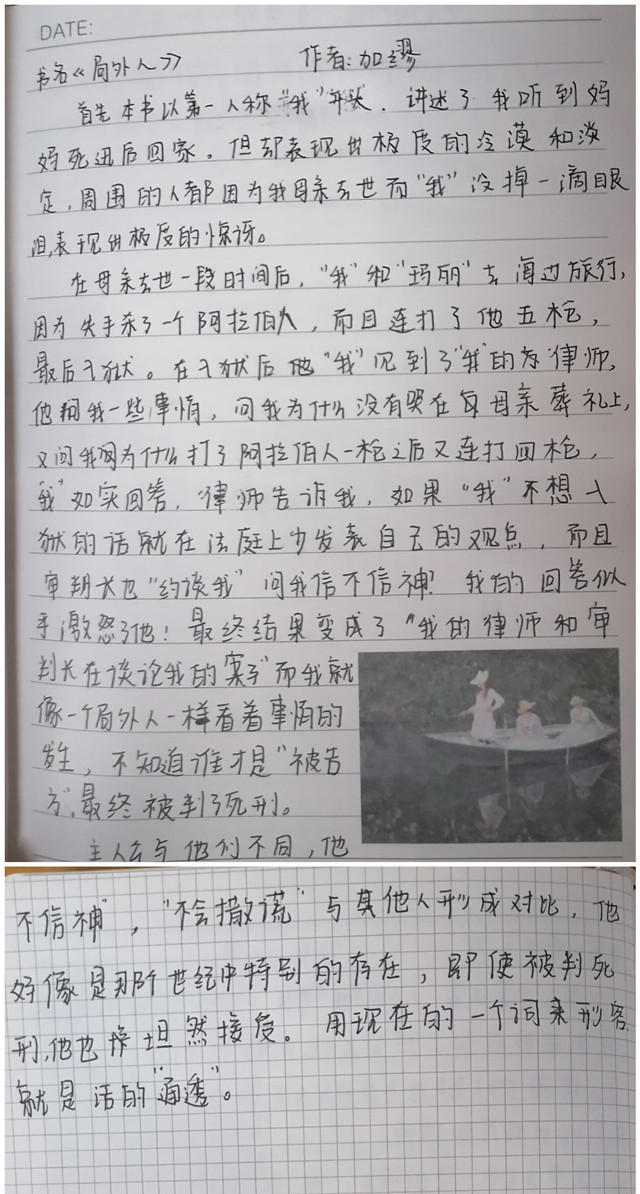 DATE:
书名《局外人》 作者:加缪
首先本书以第一人称“我”开头，讲述了我听到妈
妈死迅后回家，但却表现出极度的冷漠和淡
定，周围的人都因为我母亲去世而“我”没掉一滴眼
泪,表现出极度的惊讶。
在母亲去世一段时间后，“我”和“玛丽”去海边旅行，
因为失手杀了一个阿拉伯人，而且连打了他五枪，
最后入狱。在入狱后他“我”见到了“我”的律师,
他问我一些事情，问我为什么没有哭在母亲葬礼上,
又问我为什么打了阿拉伯人一枪之后又连打四枪，
“我”如实回答，律师告诉我，如果“我”不想入
狱的话就在法庭上少发表自己的观点，而且
审判长也“约谈我”问我信不信神？我的回答似
乎激怒了他！最终结果变成了“我的律师和审
判长在谈论我的案子”而我就
像一个局外人一样看着事情的
发生，不知道谁才是“被告
方”,最终被判了死刑。
主人公与他们不同，他
不信神”，“不会撒谎”与其他人形成对比，他
好像是那个世纪中特别的存在，即使被判死
刑,他也坦然接受。用现在的一个词来形容
就是活的“通透”。